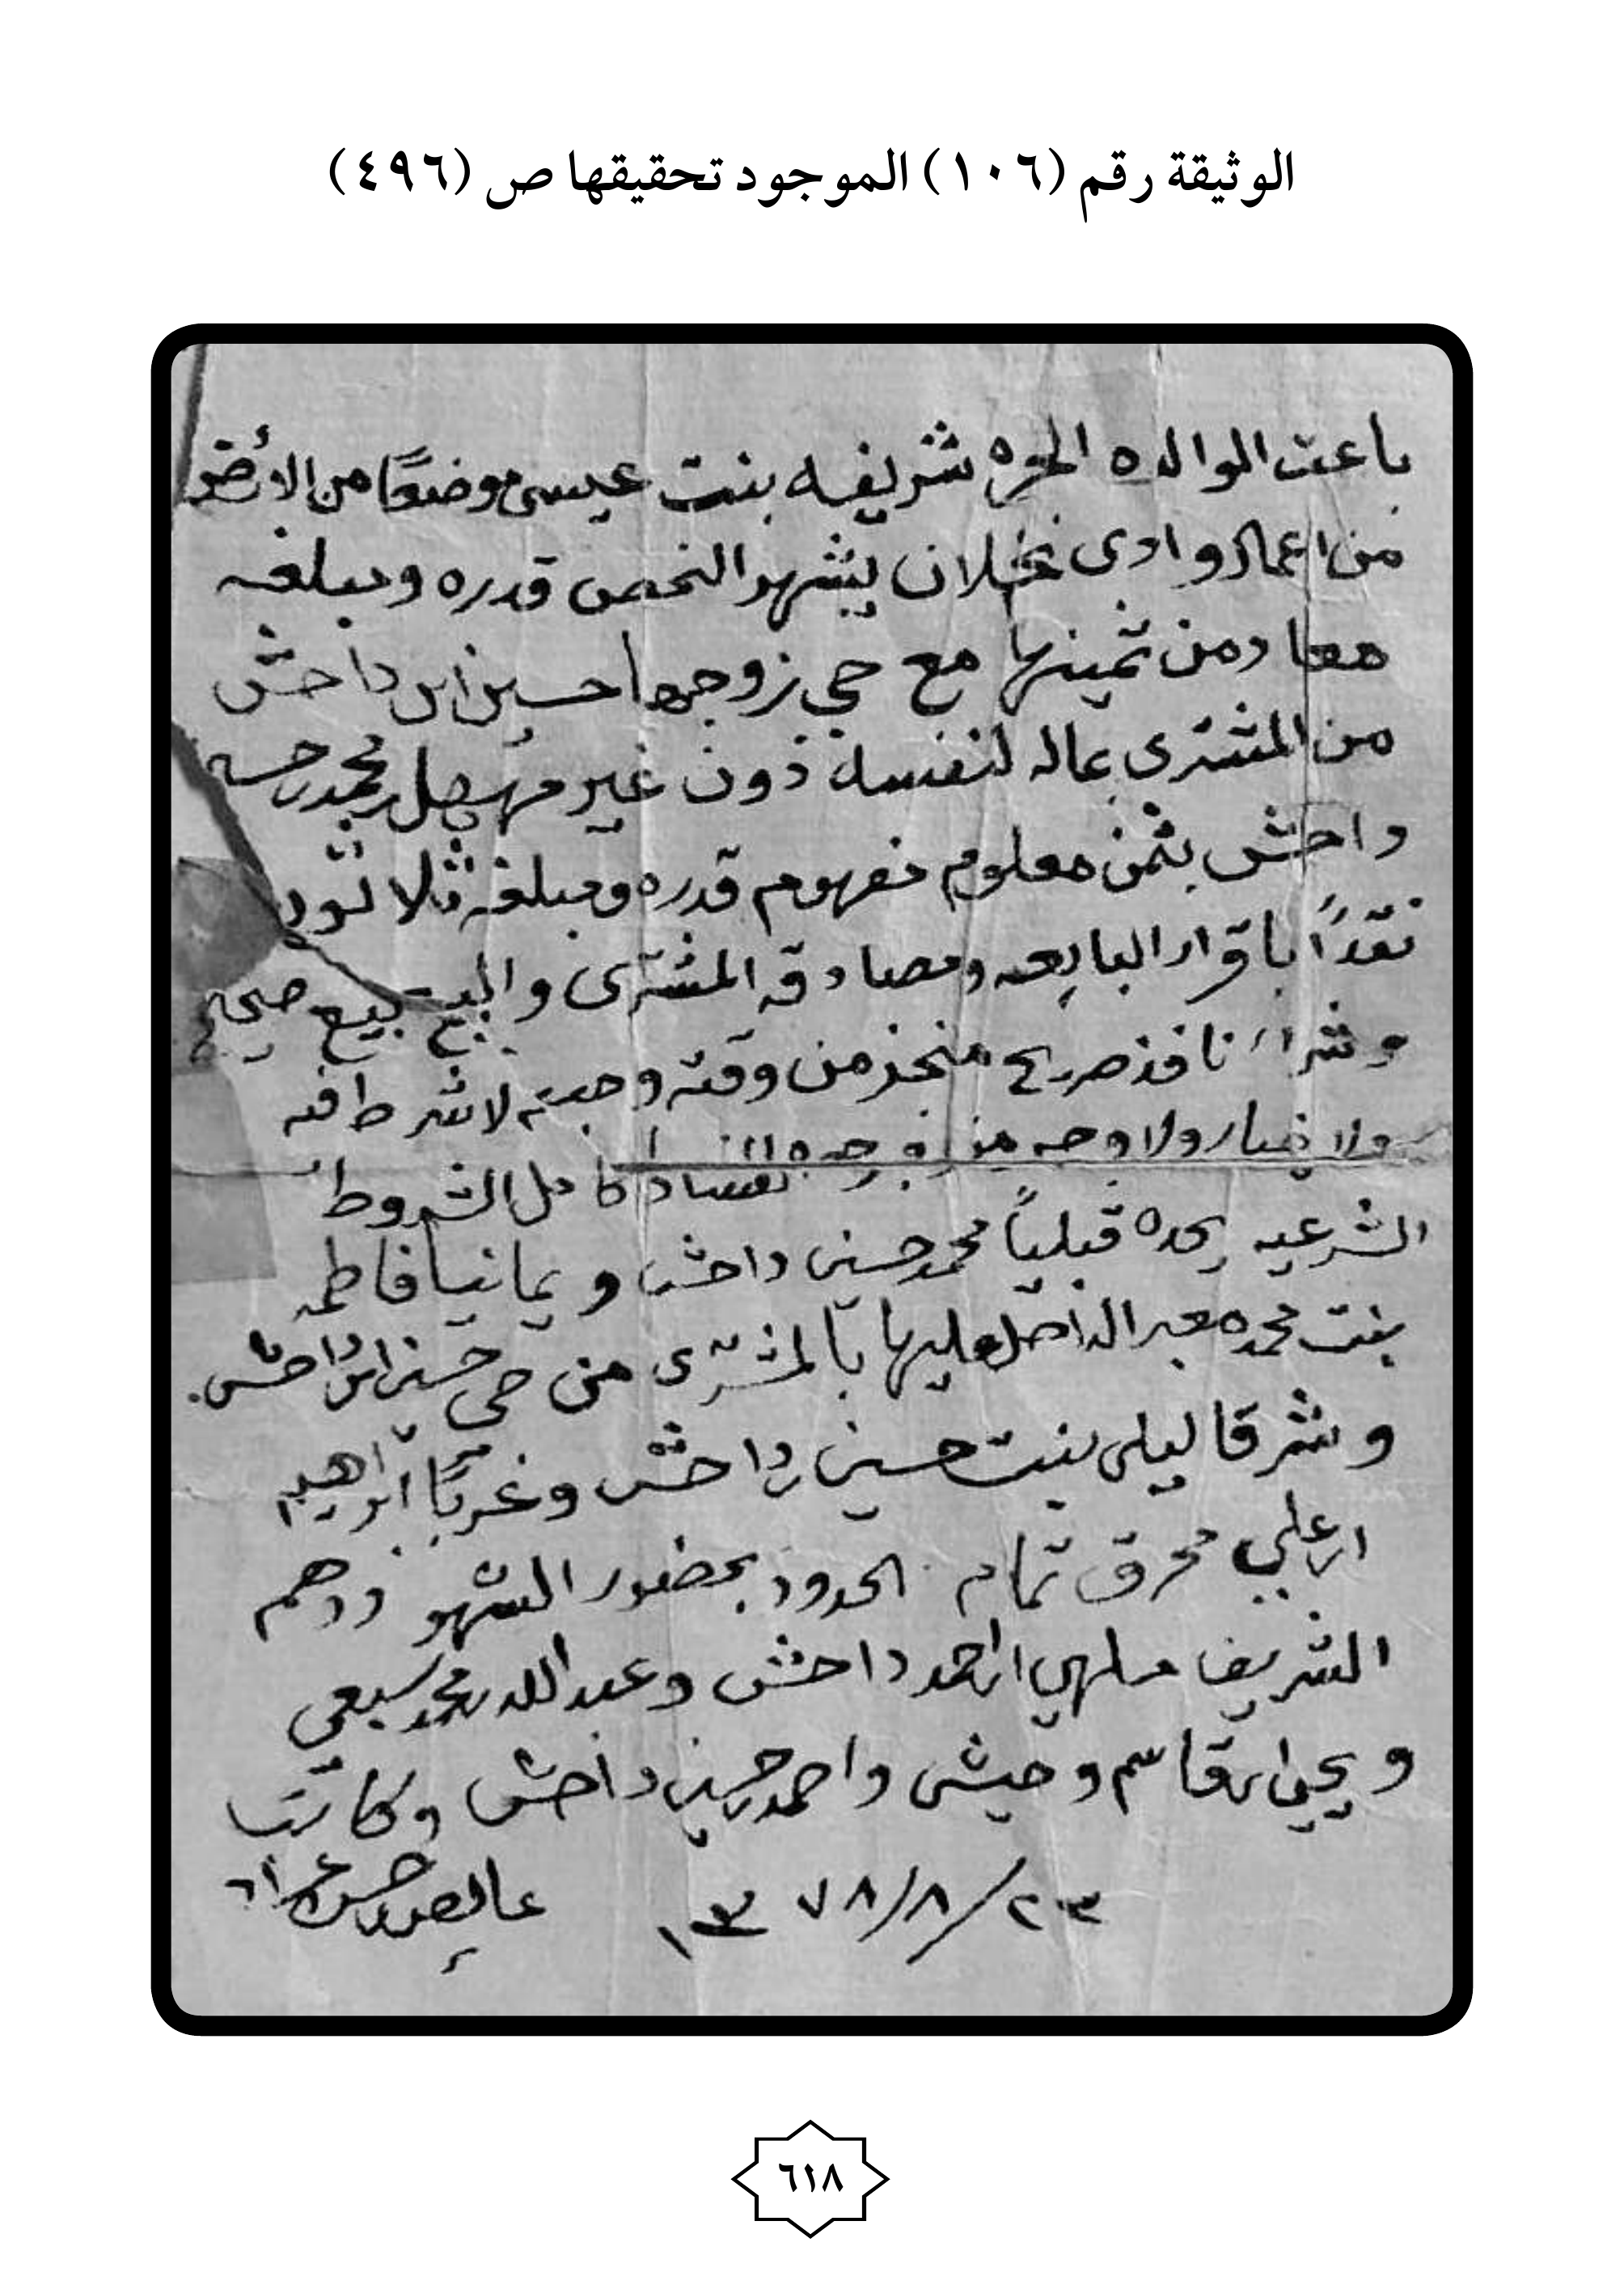 الوثيقة رقم (١٠٦) الموجود تحقيقها ص (٤٩٦)
باعت الوالده الحره شريفه بنت عيسى موضعًا من الأرض
من اعمال وادى نخلان يشهر النحص قدره ومبلغه
معاد ومن ثمينها مع حي زوجها حسين ابن داحش
من المشترى بماله لنفسه دون غيره محمد حسين
داحش بثمن معلوم مفهوم قدره ومبلغه ثلاثون
نقدًا باقرار البايعه ومصادقة المشترى والبيع بيع صحيح
وشراء نافذ صريح منجز من وقته وحينه لا شرط فيه
ولا خيار ولا وجه من وجوه الفساد كامل الشروط
الشرعيه يحده قبلياً محمد حسين داحش ويمانيا فاطمه
بنت محمد معبر الداخل عليها بالمشترى من حي حسين ابن داحش
وشرقا ليلى بنت حسين داحش وغربًا ابراهيم
ابن علي محرق تمام الحدود بحضور الشهود وهم
الشريف ملهي ابن احمد داحش وعبدالله بن محمد سبعي
ويحيى ابن قاسم وحيشي واحمد بن حسين داحش وكاتبه
٢٣/٨/١٣٧٨
٦١٨